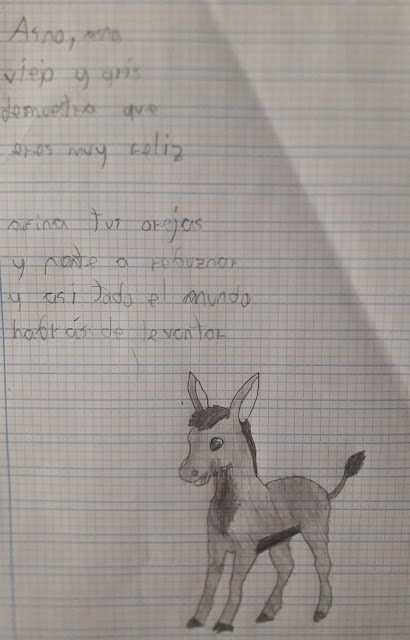 Asno, asno
viejo y gris
demuestra que
eres muy feliz
afina tus orejas
y ponte a rebuznar
y asi todo el mundo
habrás de leventar